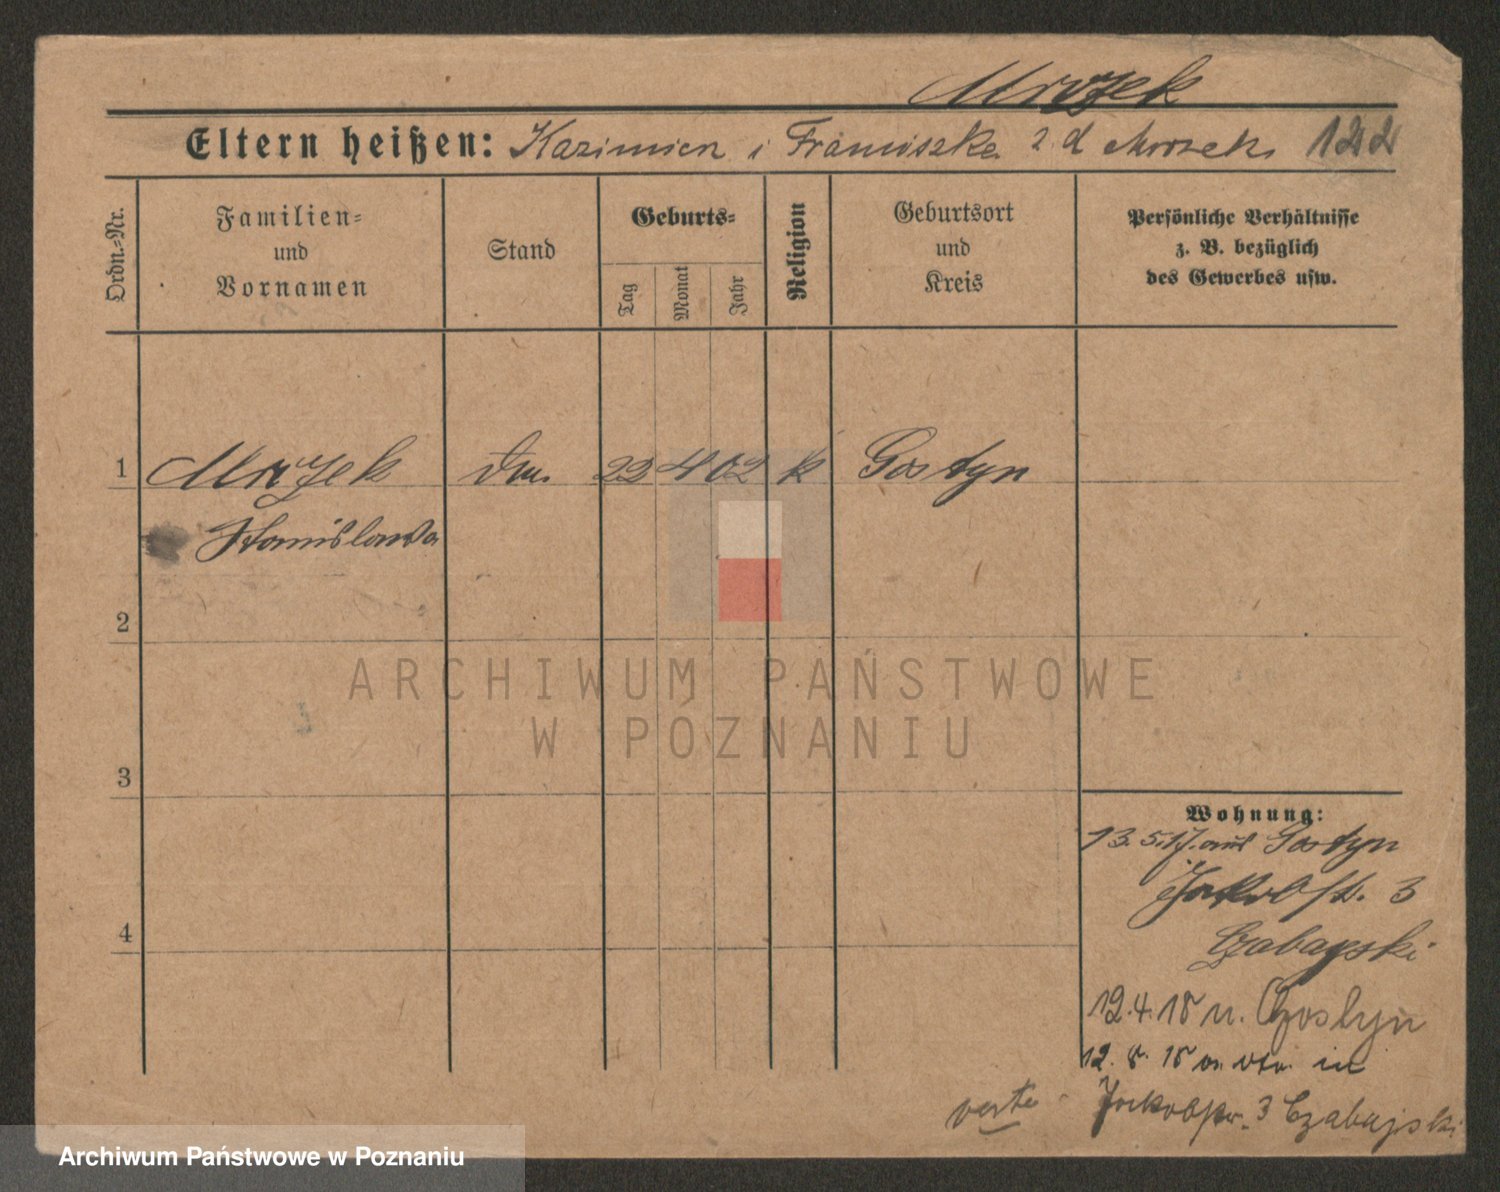 Mrozek
Eltern heißen: Kazimierz i Franciszka z d Mrozek 122
Ordn.-Nr.
Familien-
und
Vornamen
Stand
Geburts-
Tag
Monat
Jahr
Religion
Geburtsort
und
Kreis
Persönliche Verhältnisse
z. B. bezüglich
des Gewerbes usw.
1 Mrozek 22 4 02 k Gostyn
Stanislawa
2
ARCHIWUM PAŃSTWOWE
W POZNANIU
3
Wohnung:
13.5.17. aus Gostyn
Jakobstr. 3
4
Czabajski
12.4.18 n. Gostyn
12. 8. 18 v. in
verte Jakobstr. 3 Czabajski
Archiwum Państwowe w Poznaniu